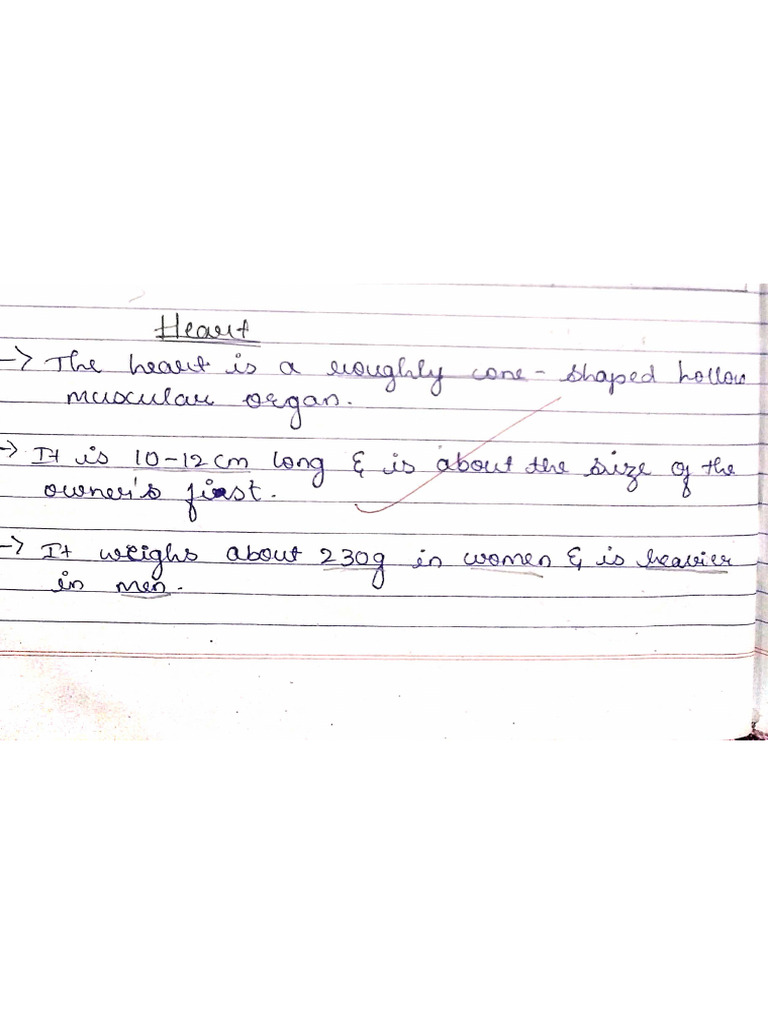 Heart
→ The heart is a roughly cone-shaped hollow
muscular organ.
→ It is 10-12 cm long & is about the size of the
owner's first.
→ It weighs about 230g in women & is heavier
in men.